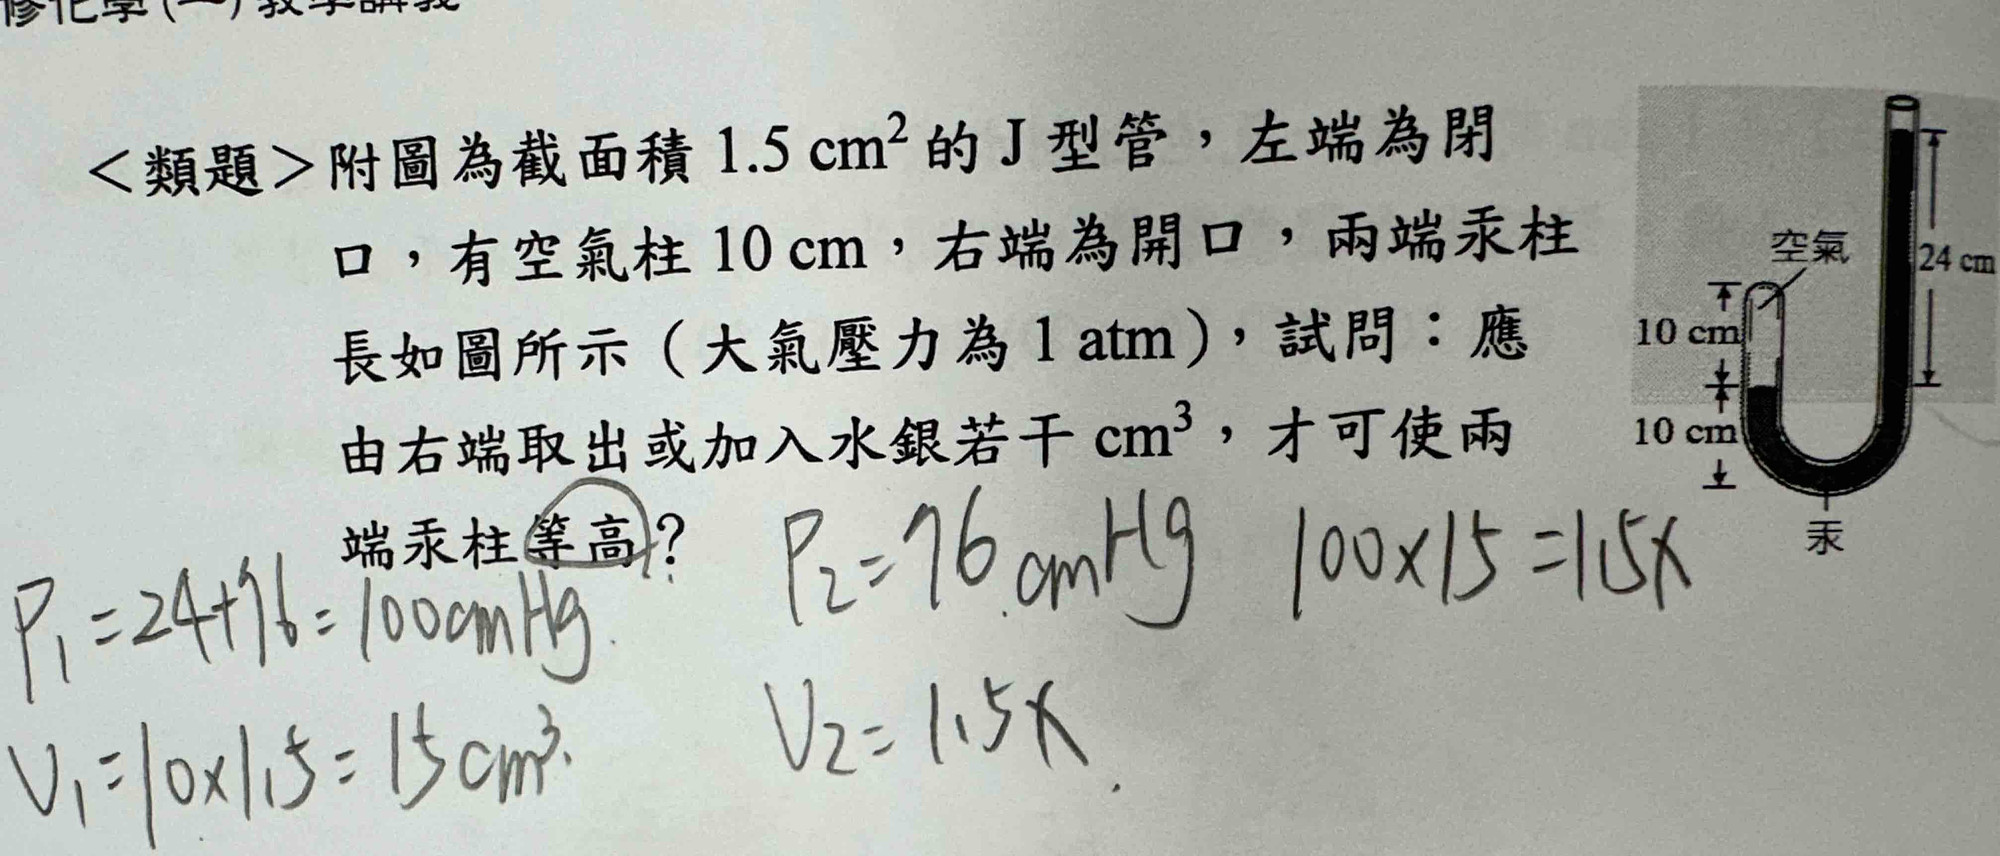 修化學(一)教學講義
<類題>附圖為截面積 1.5 cm² 的 J 型管，左端為閉
口，有空氣柱 10 cm，右端為開口，兩端汞柱
長如圖所示（大氣壓力為 1 atm），試問：應
由右端取出或加入水銀若干 cm³，才可使兩
端汞柱等高？
空氣
24 cm
10 cm
10 cm
汞
P₁=24+76=100cmHg.
V₁=10×1.5=15cm³.
P₂=76cmHg
V₂=1.5x.
100×15=1.5x